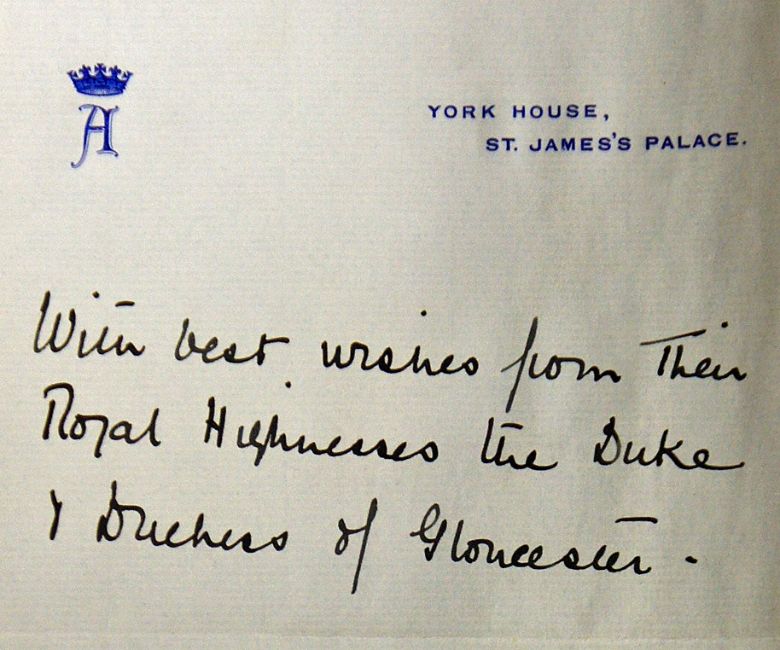 A
YORK HOUSE,
ST. JAMES'S PALACE.
With best wishes from Their
Royal Highnesses the Duke
& Duchess of Gloucester.